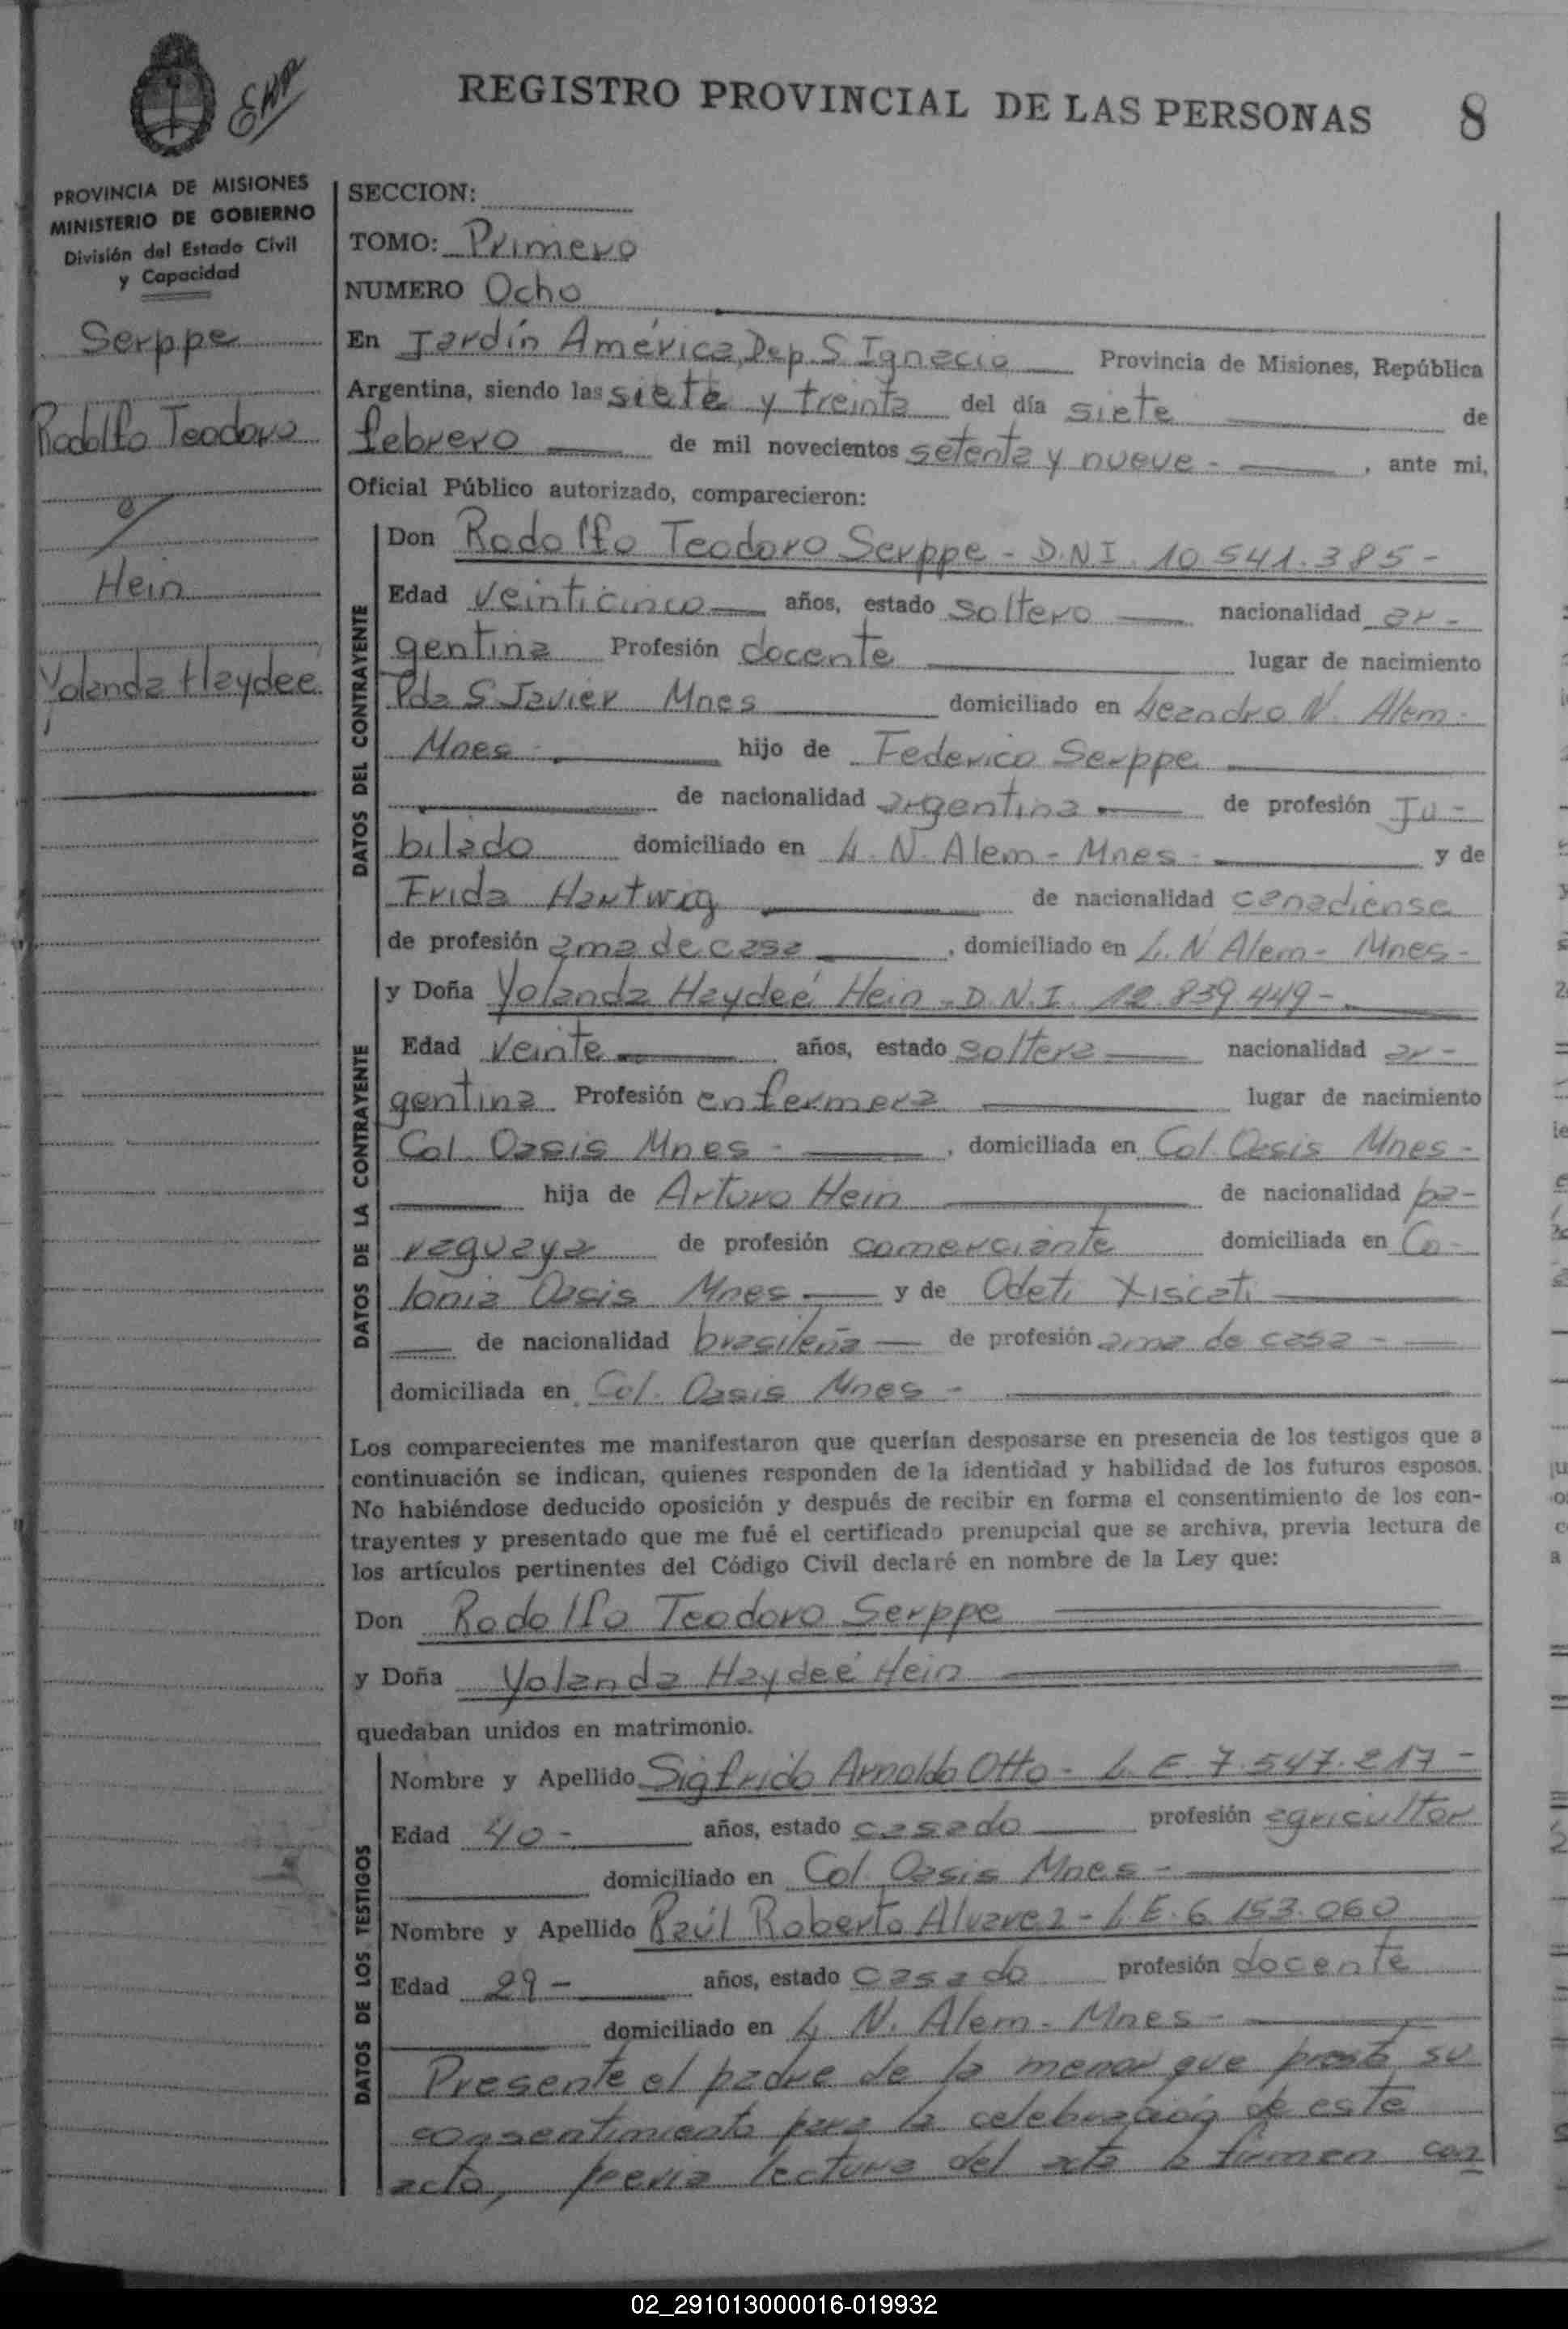 REGISTRO PROVINCIAL DE LAS PERSONAS 8
PROVINCIA DE MISIONES
MINISTERIO DE GOBIERNO
División del Estado Civil
y Capacidad
Serppe
Rodolfo Teodoro
Hein
Yolanda Haydeé
SECCION:
TOMO: Primero
NUMERO Ocho
En Jardín América, Dep. S. Ignacio Provincia de Misiones, República
Argentina, siendo las siete y treinta del día siete de
febrero de mil novecientos setenta y nueve - , ante mi,
Oficial Público autorizado, comparecieron:
DATOS DEL CONTRAYENTE
Don Rodolfo Teodoro Serppe - D.N.I. 10.541.385 -
Edad veinticinco años, estado soltero nacionalidad ar-
gentina Profesión docente lugar de nacimiento
Pda S. Javier Mnes domiciliado en Leandro N. Alem -
Mnes - hijo de Federico Serppe
de nacionalidad argentina de profesión Ju-
bilado domiciliado en L. N. Alem - Mnes - y de
Frida Hartwig de nacionalidad canadiense
de profesión ama de casa , domiciliado en L. N Alem - Mnes -
DATOS DE LA CONTRAYENTE
y Doña Yolanda Haydeé Hein - D.N.I. 12.839.449 -
Edad veinte años, estado soltera nacionalidad ar-
gentina Profesión enfermera lugar de nacimiento
Col. Oasis Mnes - , domiciliada en Col. Oasis Mnes -
hija de Arturo Hein de nacionalidad pa-
raguaya de profesión comerciante domiciliada en Co-
lonia Oasis Mnes y de Odeti Xiscati
de nacionalidad brasileña de profesión ama de casa -
domiciliada en Col. Oasis Mnes -
Los comparecientes me manifestaron que querían desposarse en presencia de los testigos que a
continuación se indican, quienes responden de la identidad y habilidad de los futuros esposos.
No habiéndose deducido oposición y después de recibir en forma el consentimiento de los con-
trayentes y presentado que me fué el certificado prenupcial que se archiva, previa lectura de
los artículos pertinentes del Código Civil declaré en nombre de la Ley que:
Don Rodolfo Teodoro Serppe
y Doña Yolanda Haydeé Hein
quedaban unidos en matrimonio.
DATOS DE LOS TESTIGOS
Nombre y Apellido Sigfrido Arnoldo Otto - L. E. 7.547.217 -
Edad 40 - años, estado casado profesión agricultor
domiciliado en Col. Oasis Mnes -
Nombre y Apellido Raúl Roberto Alvarez - L.E. 6.153.060
Edad 29 - años, estado casado profesión docente
domiciliado en L. N. Alem - Mnes -
Presente el padre de la menor que prestó su
consentimiento para la celebración de este
acto, previa lectura del acta la firmen con
02_291013000016-019932